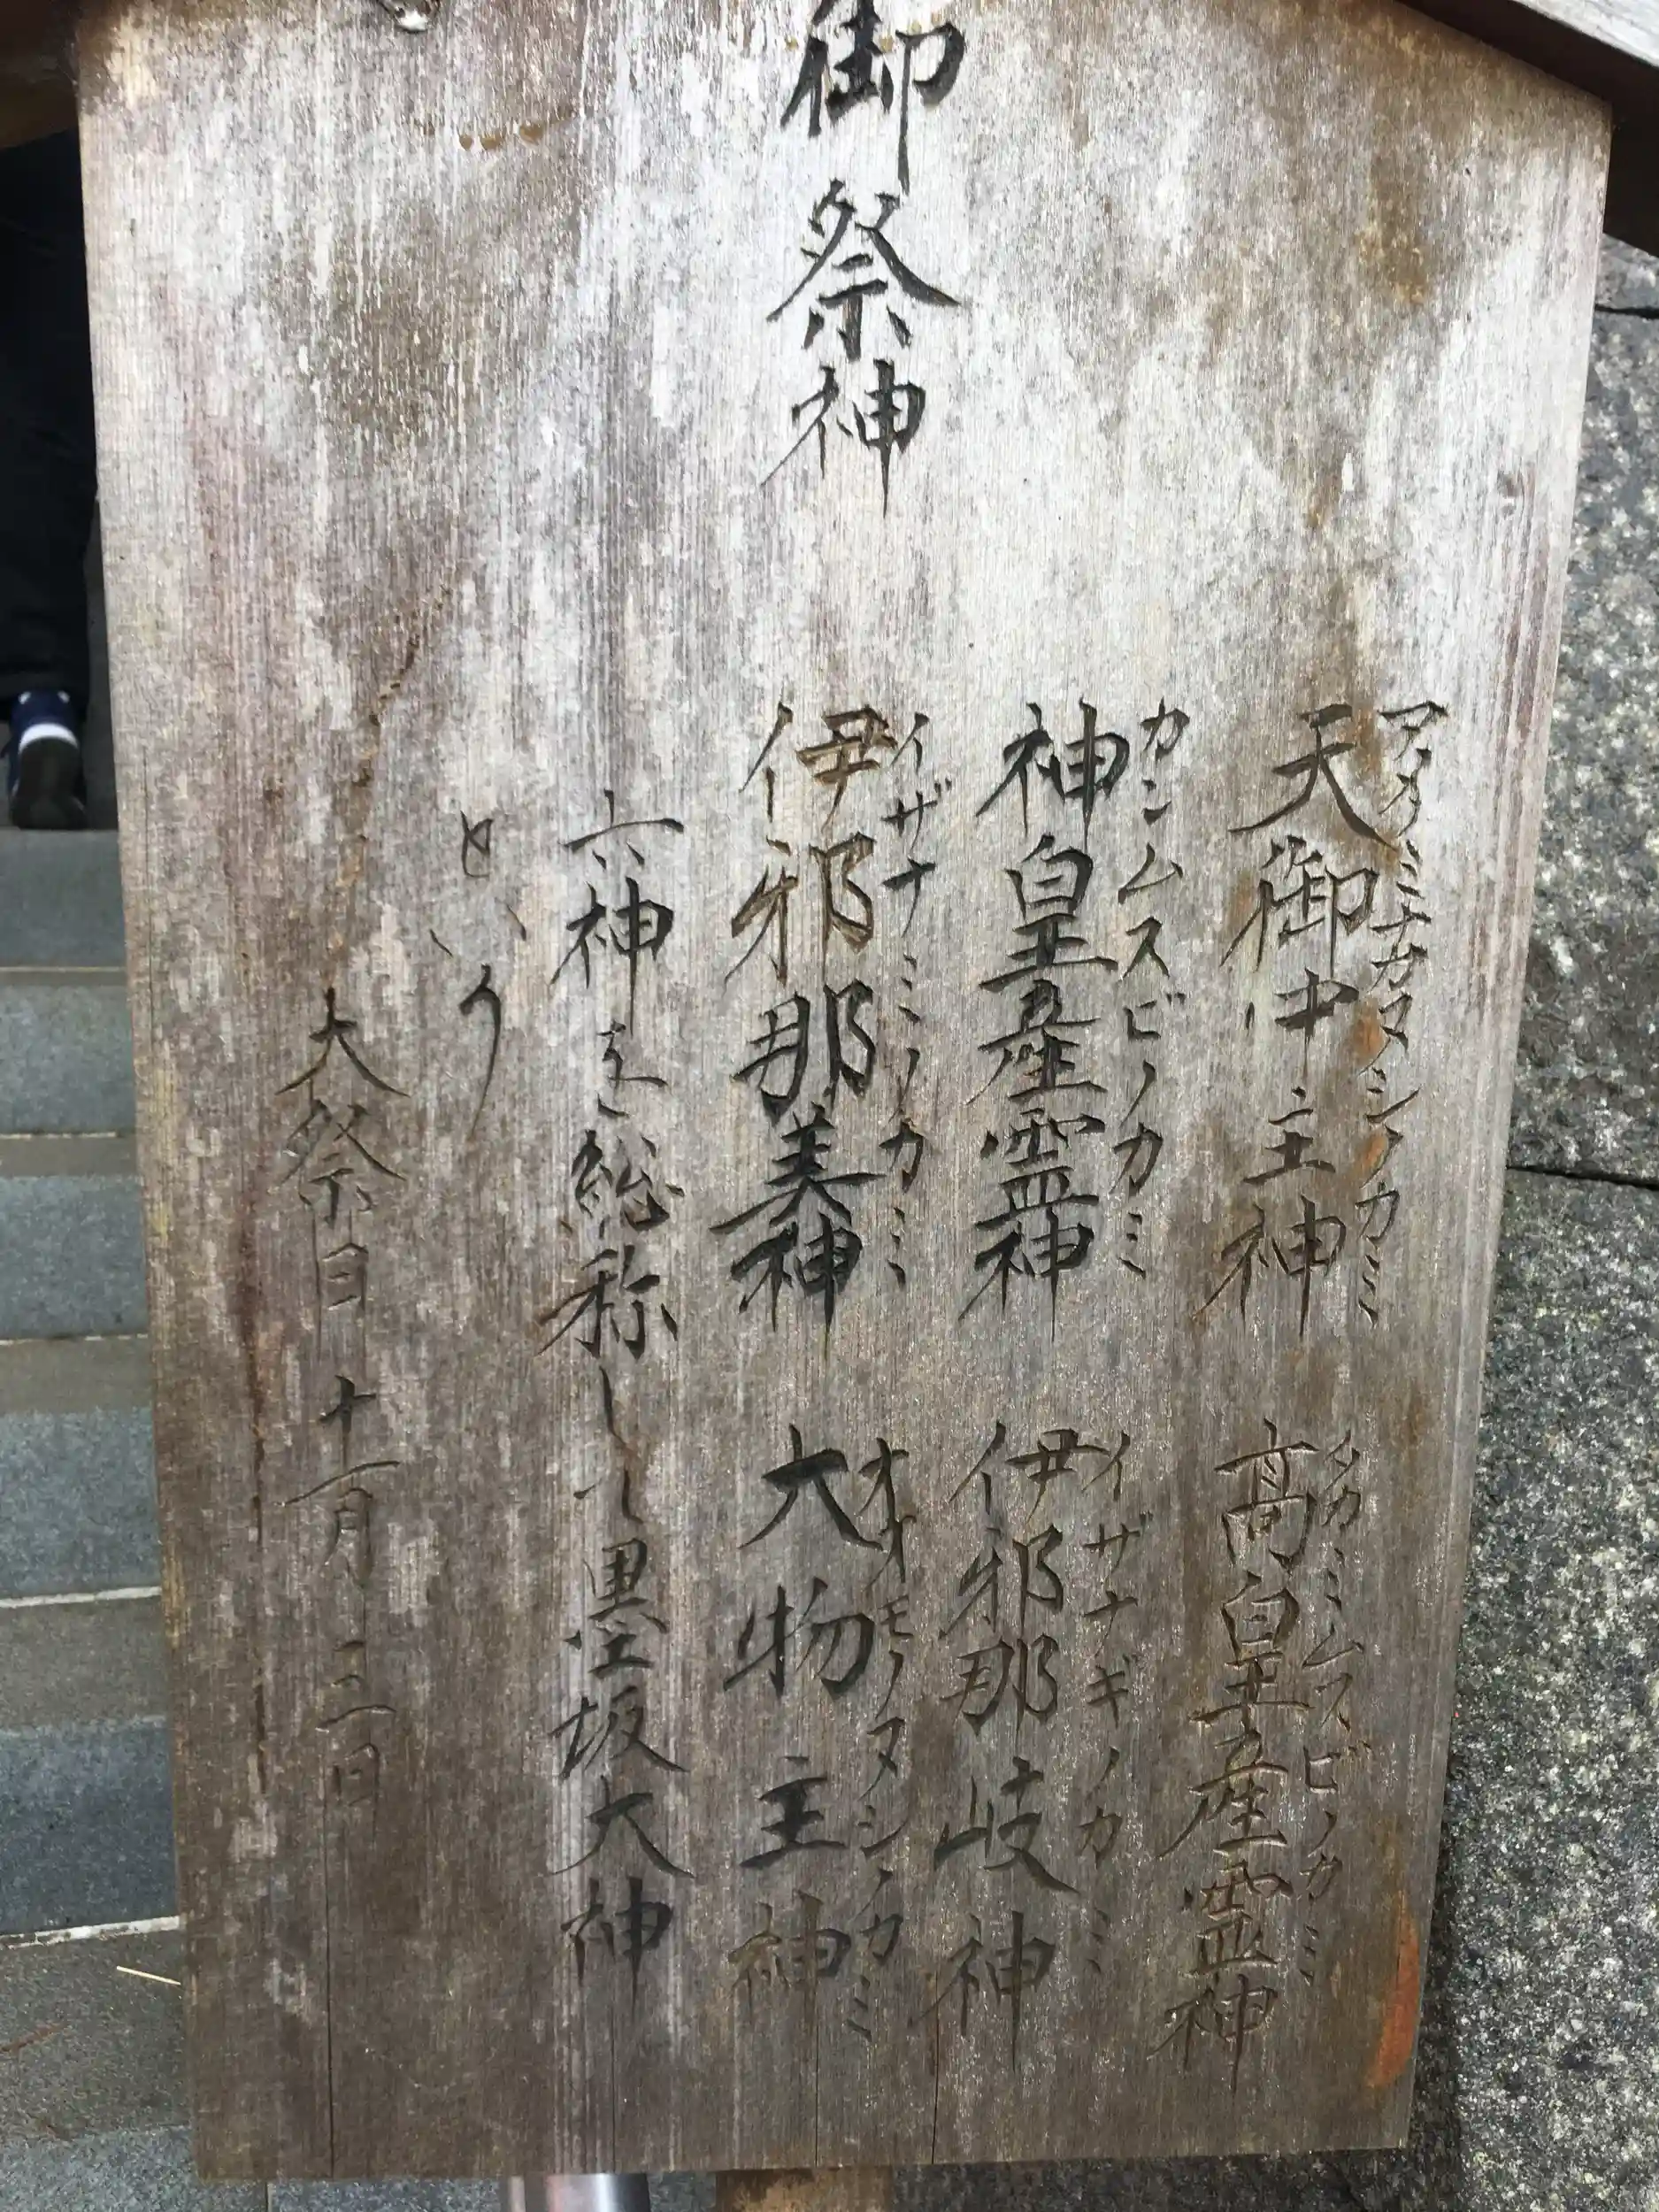 御祭神
アメノミナカヌシノカミ
天御中主神
タカミムスビノカミ
高皇産霊神
カンムスビノカミ
神皇産霊神
イザナギノカミ
伊邪那岐神
イザナミノカミ
伊邪那美神
オオモノヌシノカミ
大物主神
六神を総称して墨坂大神
という
大祭日 十一月三日